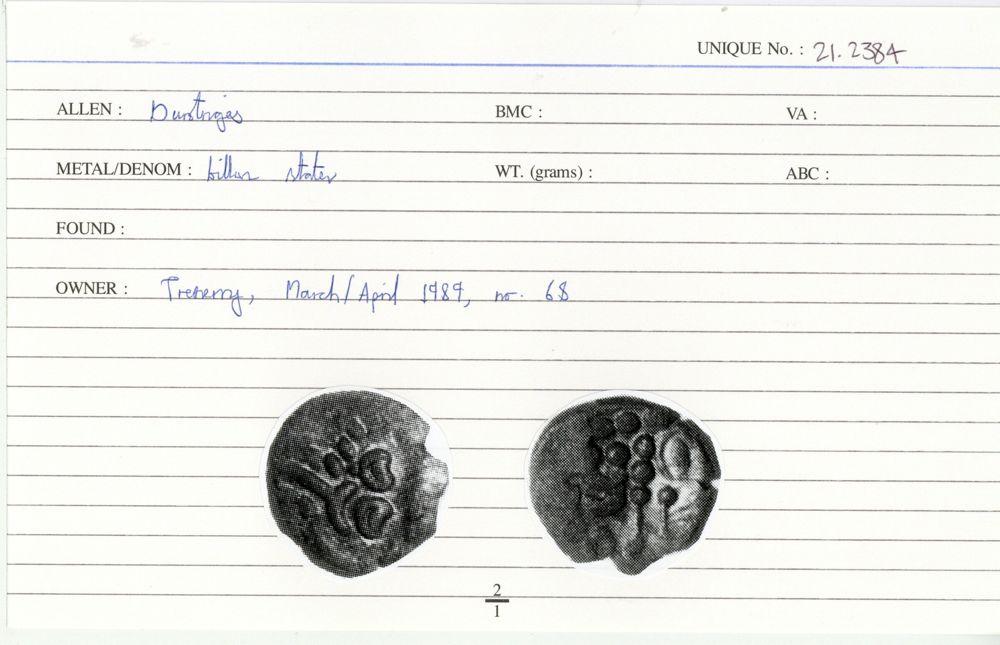 UNIQUE No. : 21.2384
ALLEN : Durotriges BMC : VA :
METAL/DENOM : billon stater WT. (grams) : ABC :
FOUND :
OWNER : March/April 1989, no. 68
2
1